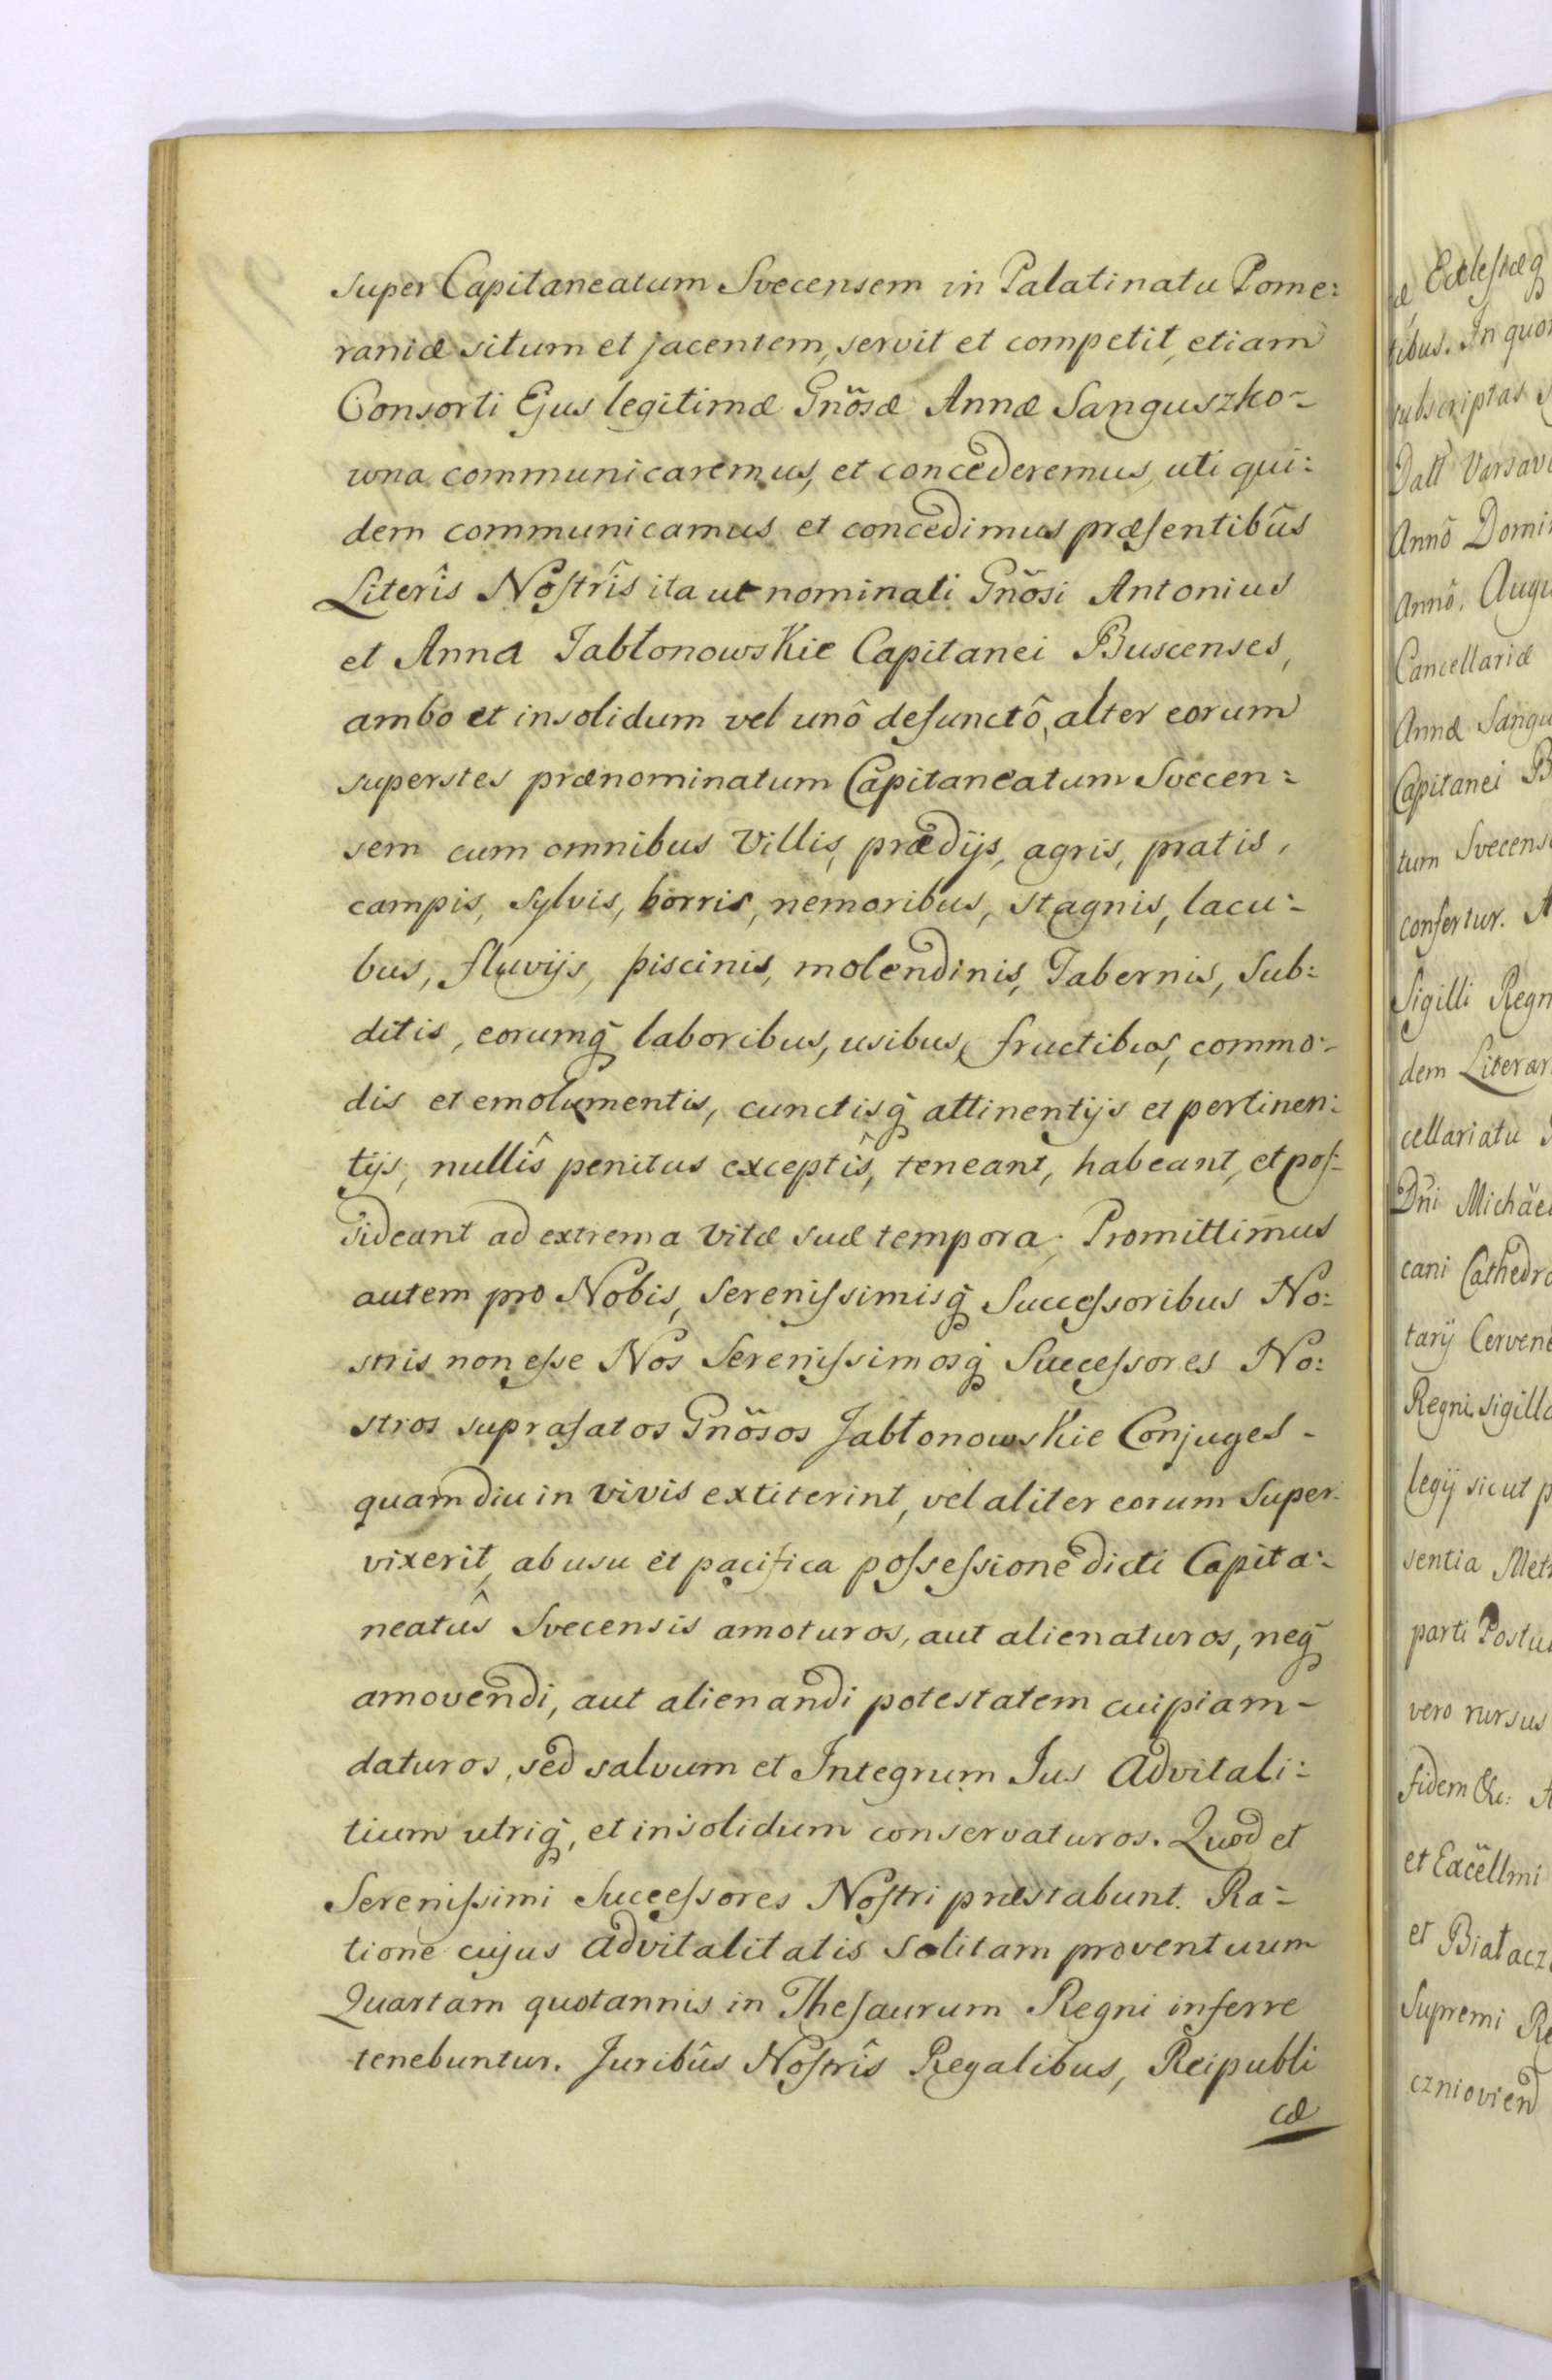 super Capitaneatum Svecensem in Palatinatu Pome:
raniæ situm et jacentem, servit et competit, etiam
Consorti Ejus legitimæ Gnõsæ Annæ Sanguszko-
wna communicaremus, et concederemus, uti qui:
dem communicamus et concedimus præsentibûs
Literîs Nostrîs ita ut nominati Gnõsi Antonius
et Anna Jabłonowskie Capitanei Buscenses,
ambo et insolidum vel unô defunctô, alter eorum
superstes prænominatum Capitaneatum Svecen:
sem cum omnibus Villis, prædijs, agris, pratis,
campis, sylvis, borris, nemoribus, stagnis, lacu:
bus, fluvijs, piscinis, molendinis, Tabernis, Sub:
ditis, eorumq̃ laboribus, usibus, fructibus, commo:
dis et emolumentis, cunctisq̃ attinentijs et pertinen:
tijs, nullîs penitus exceptîs, teneant, habeant, et pos:
sideant ad extrema Vitæ suæ tempora. Promittimus
autem pro Nobis, Serenissimisq̃ Successoribus No:
stris non esse Nos Serenissimosq̃ Successores No:
stros suprafatos Gnõsos Jabłonowskie Conjuges -
quamdiu in vivis extiterint, vel aliter eorum Super:
vixerit, ab usu et pacifica possessione dicti Capita:
neatûs Svecensis amoturos, aut alienaturos, neq̃
amovendi, aut alienandi potestatem cuipiam -
daturos, sed salvum et Integrum Jus Advitali:
tium utriq̃, et insolidum conservaturos. Quod et
Serenissimi Successores Nostri præstabunt. Ra-
tione cujus advitalitatis solitam proventuum
Quartam quotannis in Thesaurum Regni inferre
tenebuntur. Juribûs Nostrîs Regalibus, Reipubli
cæ
æ Ecclesiæq
tibus. In quor
subscriptas
Datt Varsavi
Annô Domin
Annô. Augu
Cancellariæ
Annæ Sangu
Capitanei B
tum Svecens
confertur. A
Sigilli Regn
dem Literar
cellariatu
Dni Michäe
cani Cathedr
tarij Cervene
Regni sigill
legij sicut p
sentia Met
parti Postu
vero rursus
fidem &c: A
et Excellmi
et Białacz
Supremi Re
czniovien